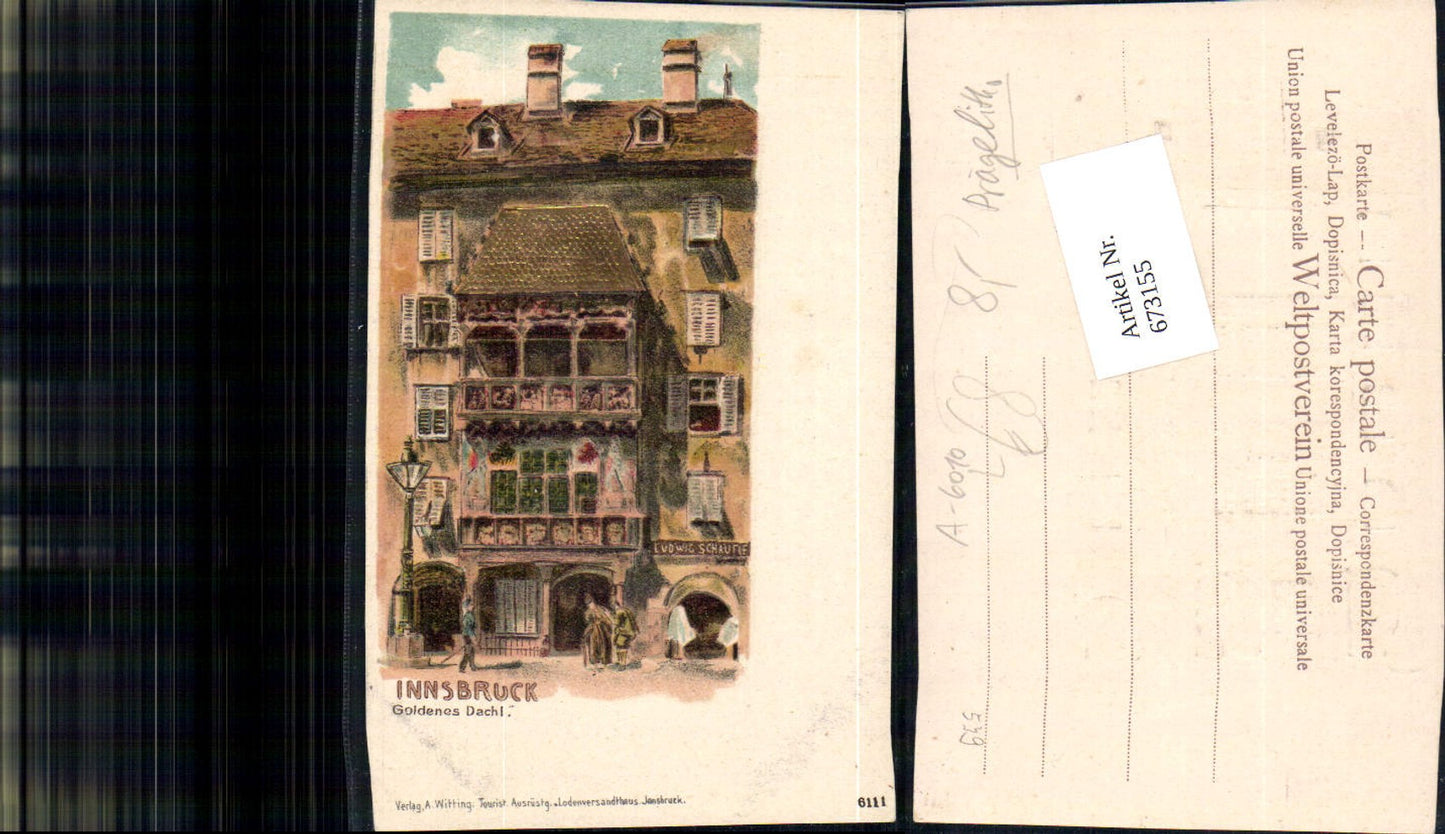 LUDWIG SCHAUFLE
INNSBRUCK
Goldenes Dachl.
Verlag, A. Witting, Tourist. Ausrüstg. „Lodenversandthaus Jnnsbruck.
6111
Postkarte — Carte postale — Correspondenzkarte
Levelező-Lap, Dopisnica, Karta korespondencyjna, Dopisnice
Union postale universelle Weltpostverein Unione postale universale
Artikel Nr.
673155
Prägelitho
A-6010
539